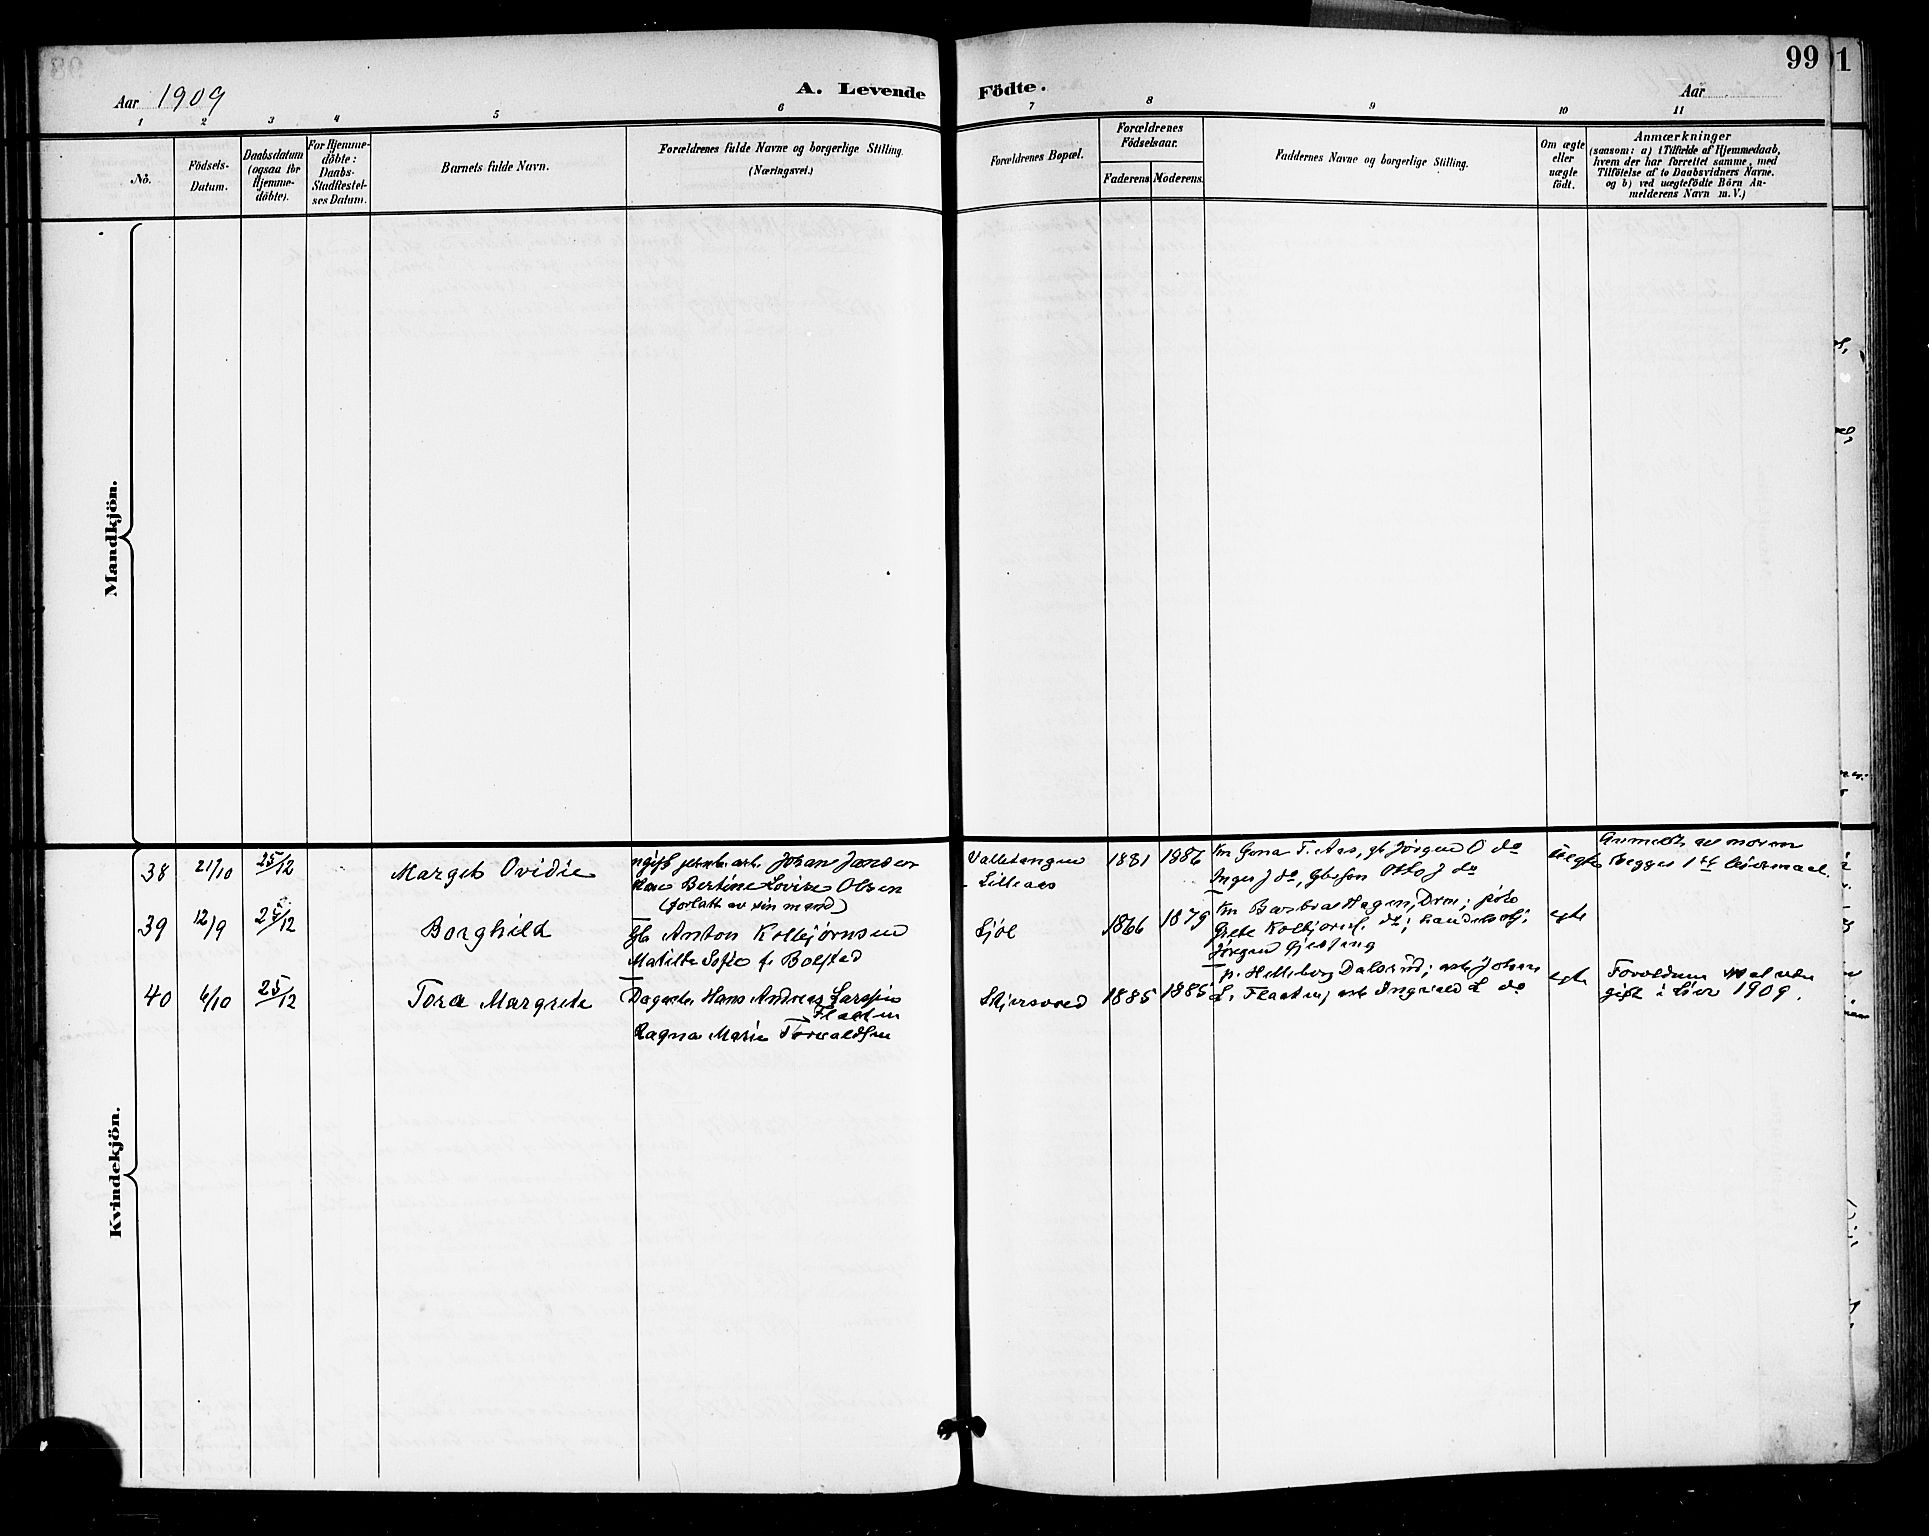 99
1
Aar 1909
A. Levende Födte.
Aar
1 2 3 4 5 6 7 8 9 10 11
No.
Födsels-
Datum.
Daabsdatum
(ogsaa for
Hjemme-
döbte).
For Hjemme-
döbte:
Daabs-
Stadfestel-
ses Datum.
Barnets fulde Navn.
Forældrenes fulde Navne og borgerlige Stilling.
(Næringsvei.)
Forældrenes Bopæl.
Forældrenes
Födselsaar.
Faderens. Moderens.
Faddernes Navne og borgerlige Stilling.
Om ægte
eller
uægte
födt.
Anmærkninger
(saasom: a) i Tilfælde af Hjemmedaab,
hvem der har forrettet samme, med
Tilföielse af to Daabsvidners Navne.
og b) ved uægtefödte Börn An-
melderens Navn m. V.)
Mandkjön.
Kvindekjön.
38 21/10 25/12 Margit Ovidie
ugift arb. Johan Jansen
Bertine Lovise Olsen
(forlatt av sin mand)
Valletangen
Lilleaas
1881 1886
Km Gona T. Aas, gb Jørgen O do
Inger J do, Gbesøn Otto J do
Uegte
Anmeldt av moren
Begges 1ste leiermaal.
39 12/9 25/12 Borghild
Gb Anton Kolbjørnsen
Matilde Sofie f. Bolstad
Sjøl
1866 1879
Km Barbra Hagen, Drm;
Grete Kolbjørns. do;
Jørgen
egte
40 6/10 25/12 Tora Margrete
Dagarb. Hans Andreas Larssen
Flaaten
Ragna Marie Torvaldsen
Skjersvoed
1885 1885
p. Dalsrud; arb Johan
L. Flaaten, arb Ingvald L do
egte
Forældrene
gift i Lier 1909.